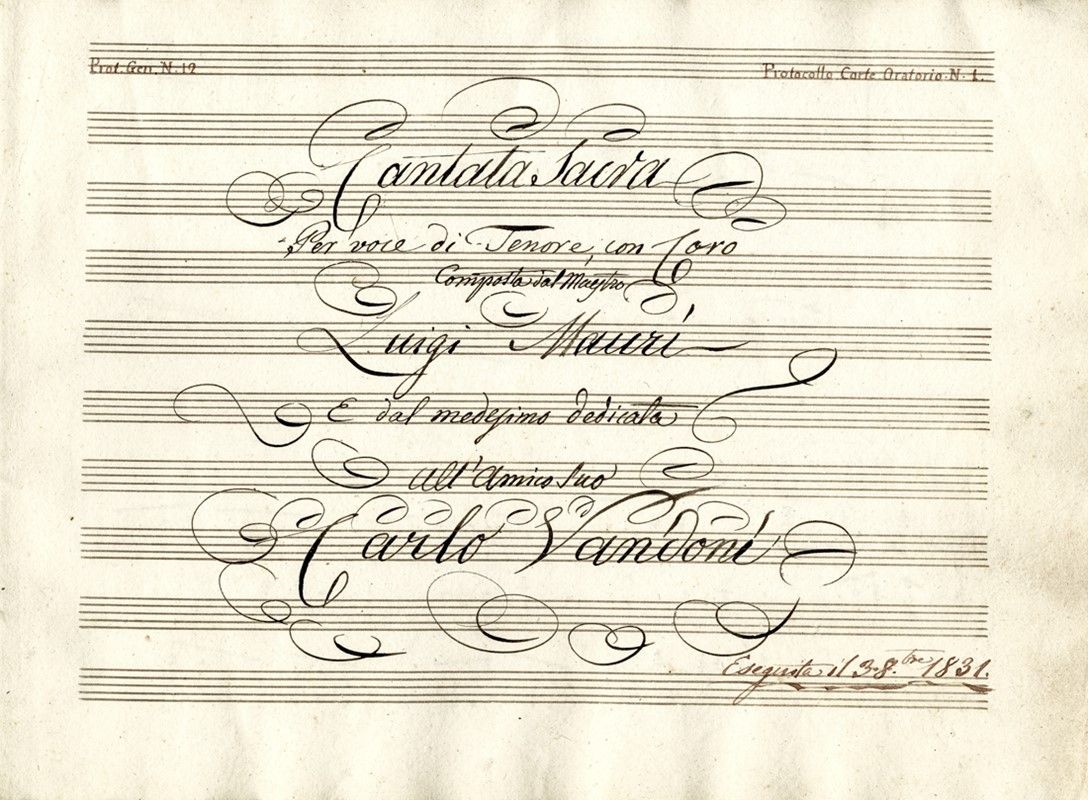 Prot. Gen. N. 12
Protocollo Carte Oratorio N. 1.
Cantata Sacra
Per voce di Tenore, con Coro
Composta dal Maestro
Luigi Mauri
E dal medesimo dedicata
all'Amico Suo
Carlo Vandoni
Eseguita il 3. 8.bre 1831.